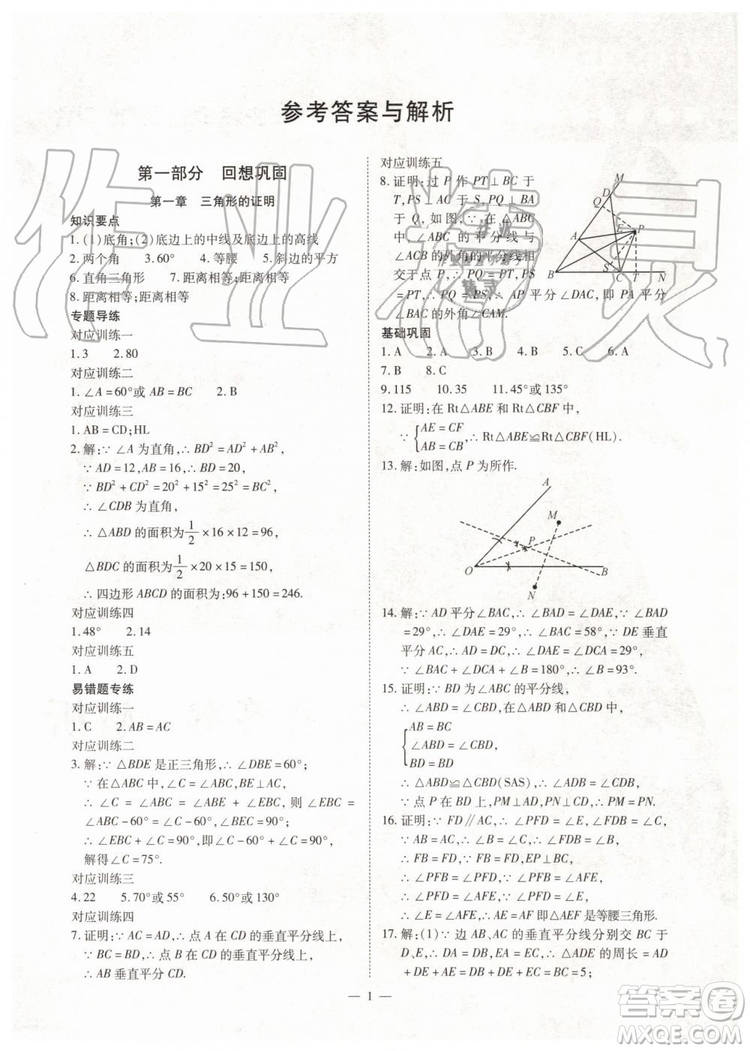 参考答案与解析
第一部分 回想巩固
第一章 三角形的证明
知识要点
1.(1)底角;(2)底边上的中线及底边上的高线
2.两个角 3.60° 4.等腰 5.斜边的平方
6.直角三角形 7.距离相等;距离相等
8.距离相等;距离相等
专题导练
对应训练一
1.3 2.80
对应训练二
1.∠A=60°或AB=BC 2.B
对应训练三
1.AB=CD;HL
2.解:∵∠A为直角,∴BD²=AD²+AB²,
∵AD=12,AB=16,∴BD=20,
∵BD²+CD²=BC²,
∴∠CDB为直角,
∴△ABD的面积为1/2×16×12=96,
△BDC的面积为1/2×20×15=150,
∴四边形ABCD的面积为:96+150=246.
对应训练四
1.48° 2.14
对应训练五
1.A 2.D
易错题专练
对应训练一
1.C 2.AB=AC
对应训练二
3.解:∵△BDE是正三角形,∴∠DBE=60°;
∵在△ABC中,∠C=∠ABC,BE⊥AC,
∴∠C=∠ABC=∠ABE+∠EBC,则∠EBC=
∠ABC-60°=∠C-60°,∠BEC=90°;
∴∠EBC+∠C=90°,即∠C-60°+∠C=90°,
解得∠C=75°.
对应训练三
4.22 5.70°或55° 6.50°或130°
对应训练四
7.证明:∵AC=AD,∴点A在CD的垂直平分线上,
∵BC=BD,∴点B在CD的垂直平分线上,∴
AB垂直平分CD.
对应训练五
8.证明:过P作PT⊥BC于
T,PS⊥AC于S,PQ⊥BA
于Q,如图,∵在△ABC
中,∠ABC的平分线与
∠ACB的外角的平分线相
交于点P,∴PQ=PT,PS=
PT,∴PQ=PS,∴AP平分∠DAC,即PA平分
∠BAC的外角∠CAM.
M
D
Q
E
P
A
S
B
C
T
N
基础巩固
1.A 2.A 3.D 4.B 5.C 6.A
7.B 8.C
9.115 10.35 11.45°或135°
12.证明:在Rt△ABE和Rt△CBF中,
∵{AE=CF
AB=BC,∴Rt△ABE≌Rt△CBF(HL).
13.解:如图,点P为所作.
A
M
P
O
B
N
14.解:∵AD平分∠BAC,∴∠BAD=∠DAE,∵∠BAD
=29°,∴∠DAE=29°,∴∠BAC=58°,∵DE垂直
平分AC,∴AD=DC,∴∠DAE=∠DCA=29°,
∵∠BAC+∠DCA+∠B=180°,∴∠B=93°.
15.证明:∵BD为∠ABC的平分线,
∴∠ABD=∠CBD,在△ABD和△CBD中,
{AB=BC
∠ABD=∠CBD,
BD=BD
∴△ABD≌△CBD(SAS),∴∠ADB=∠CDB,
∵点P在BD上,PM⊥AD,PN⊥CD,∴PM=PN.
16.证明:∵FD∥AC,∴∠PFD=∠C,∠PDF=∠A,
∵AB=AC,∴∠A=∠C,∴∠PFD=∠PDF,
∴FB=FD,∵FB⊥AC,EP⊥FD,
∴∠PFB=∠PFD,∵FB∥EP,∴∠PFB=∠E,
∴∠E=∠AFE,∴AE=AF,即△AEF是等腰三角形.
17.解:(1)∵边AB、AC的垂直平分线分别交BC于
D、E,∴DA=DB,EA=EC,∴△ADE的周长=AD
+DE+AE=DB+DE+EC=BC=5;
— 1 —
作业精灵
答案卷
MXQE.COM